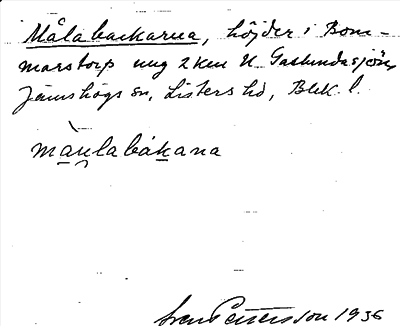 Målabackarna, höjder i Bom-
marstorp ung 2 km N. Gaslundasjön,
Jämshögs sn, Listers hd, Blek. l.
màu̯labákana
Sven Pettersson 1936